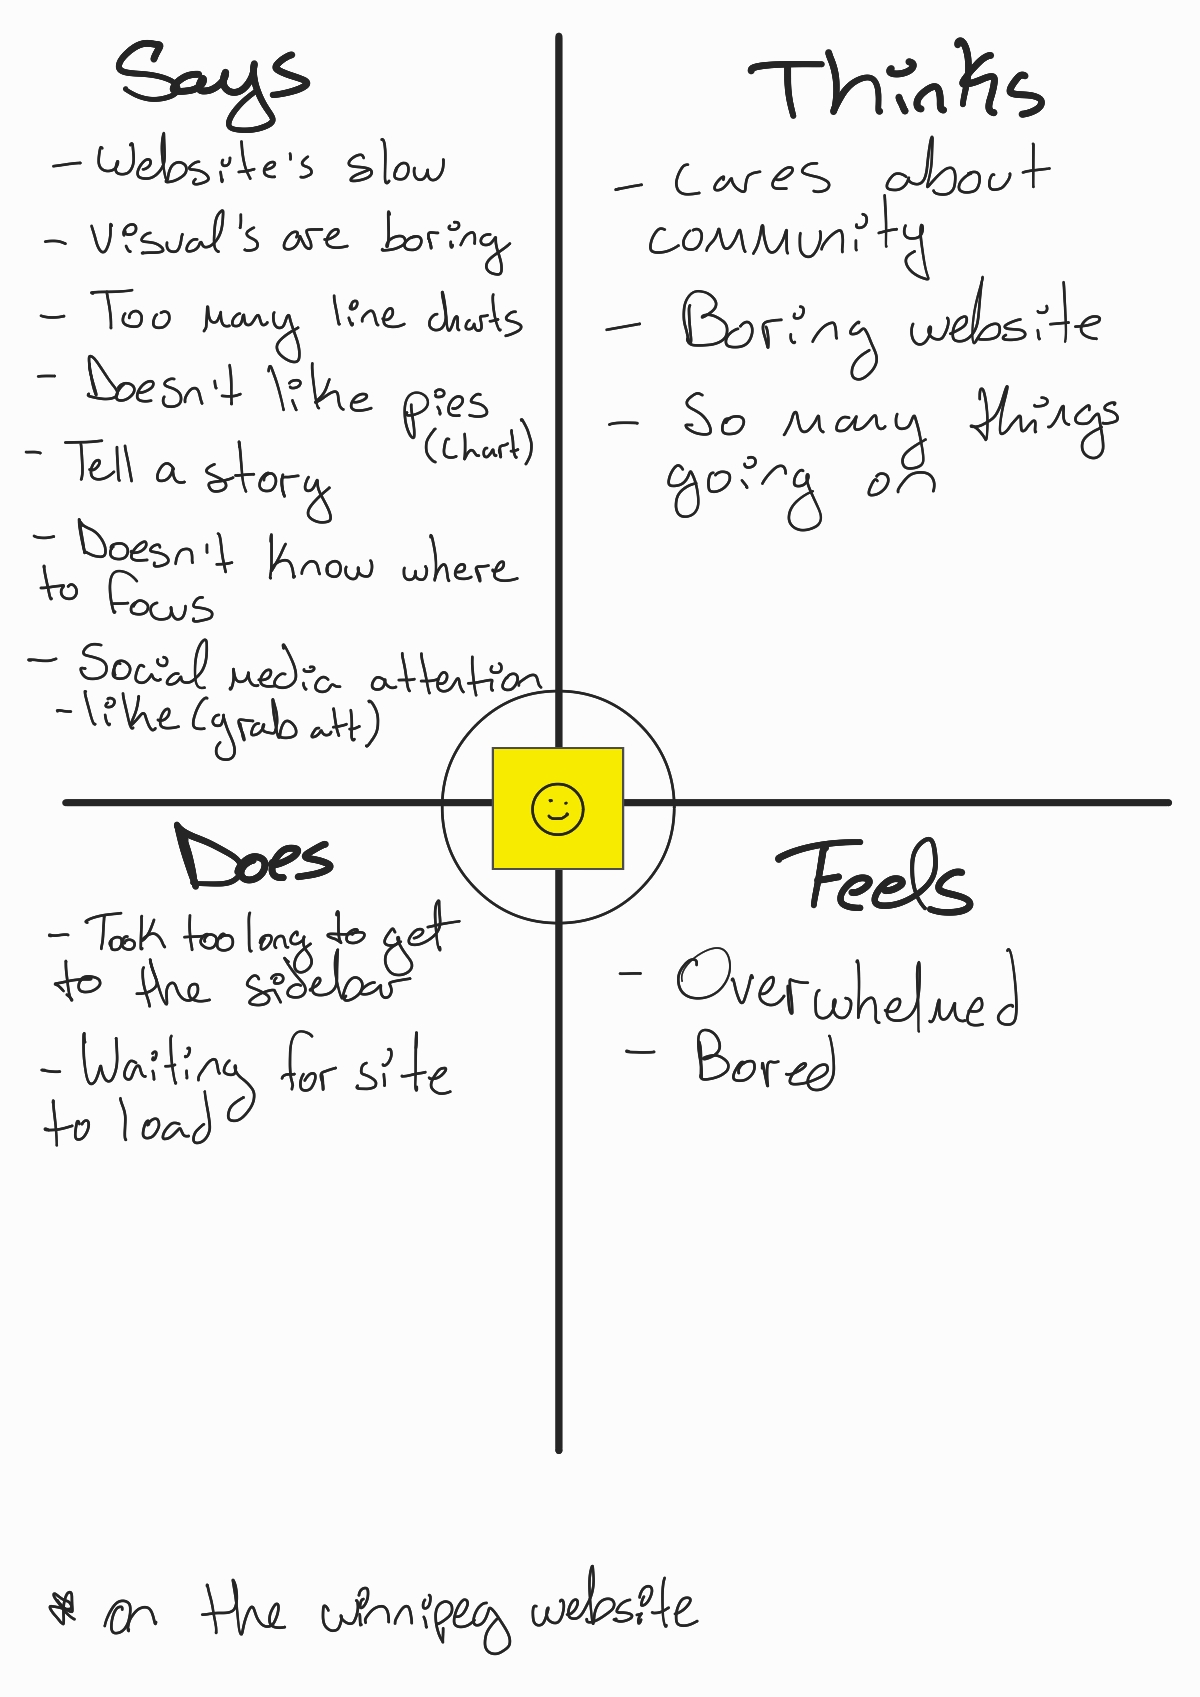 Says
- Website's slow
- Visual's are boring
- Too many line charts
- Doesn't like pies
(chart)
- Tell a story
- Doesn't know where
to focus
- Social media attention
- like (grab att)
Thinks
- Cares about
community
- Boring website
- So many things
going on
Does
- Took too long to get
to the sidebar
- Waiting for site
to load
Feels
- Overwhelmed
- Bored
* on the winnipeg website